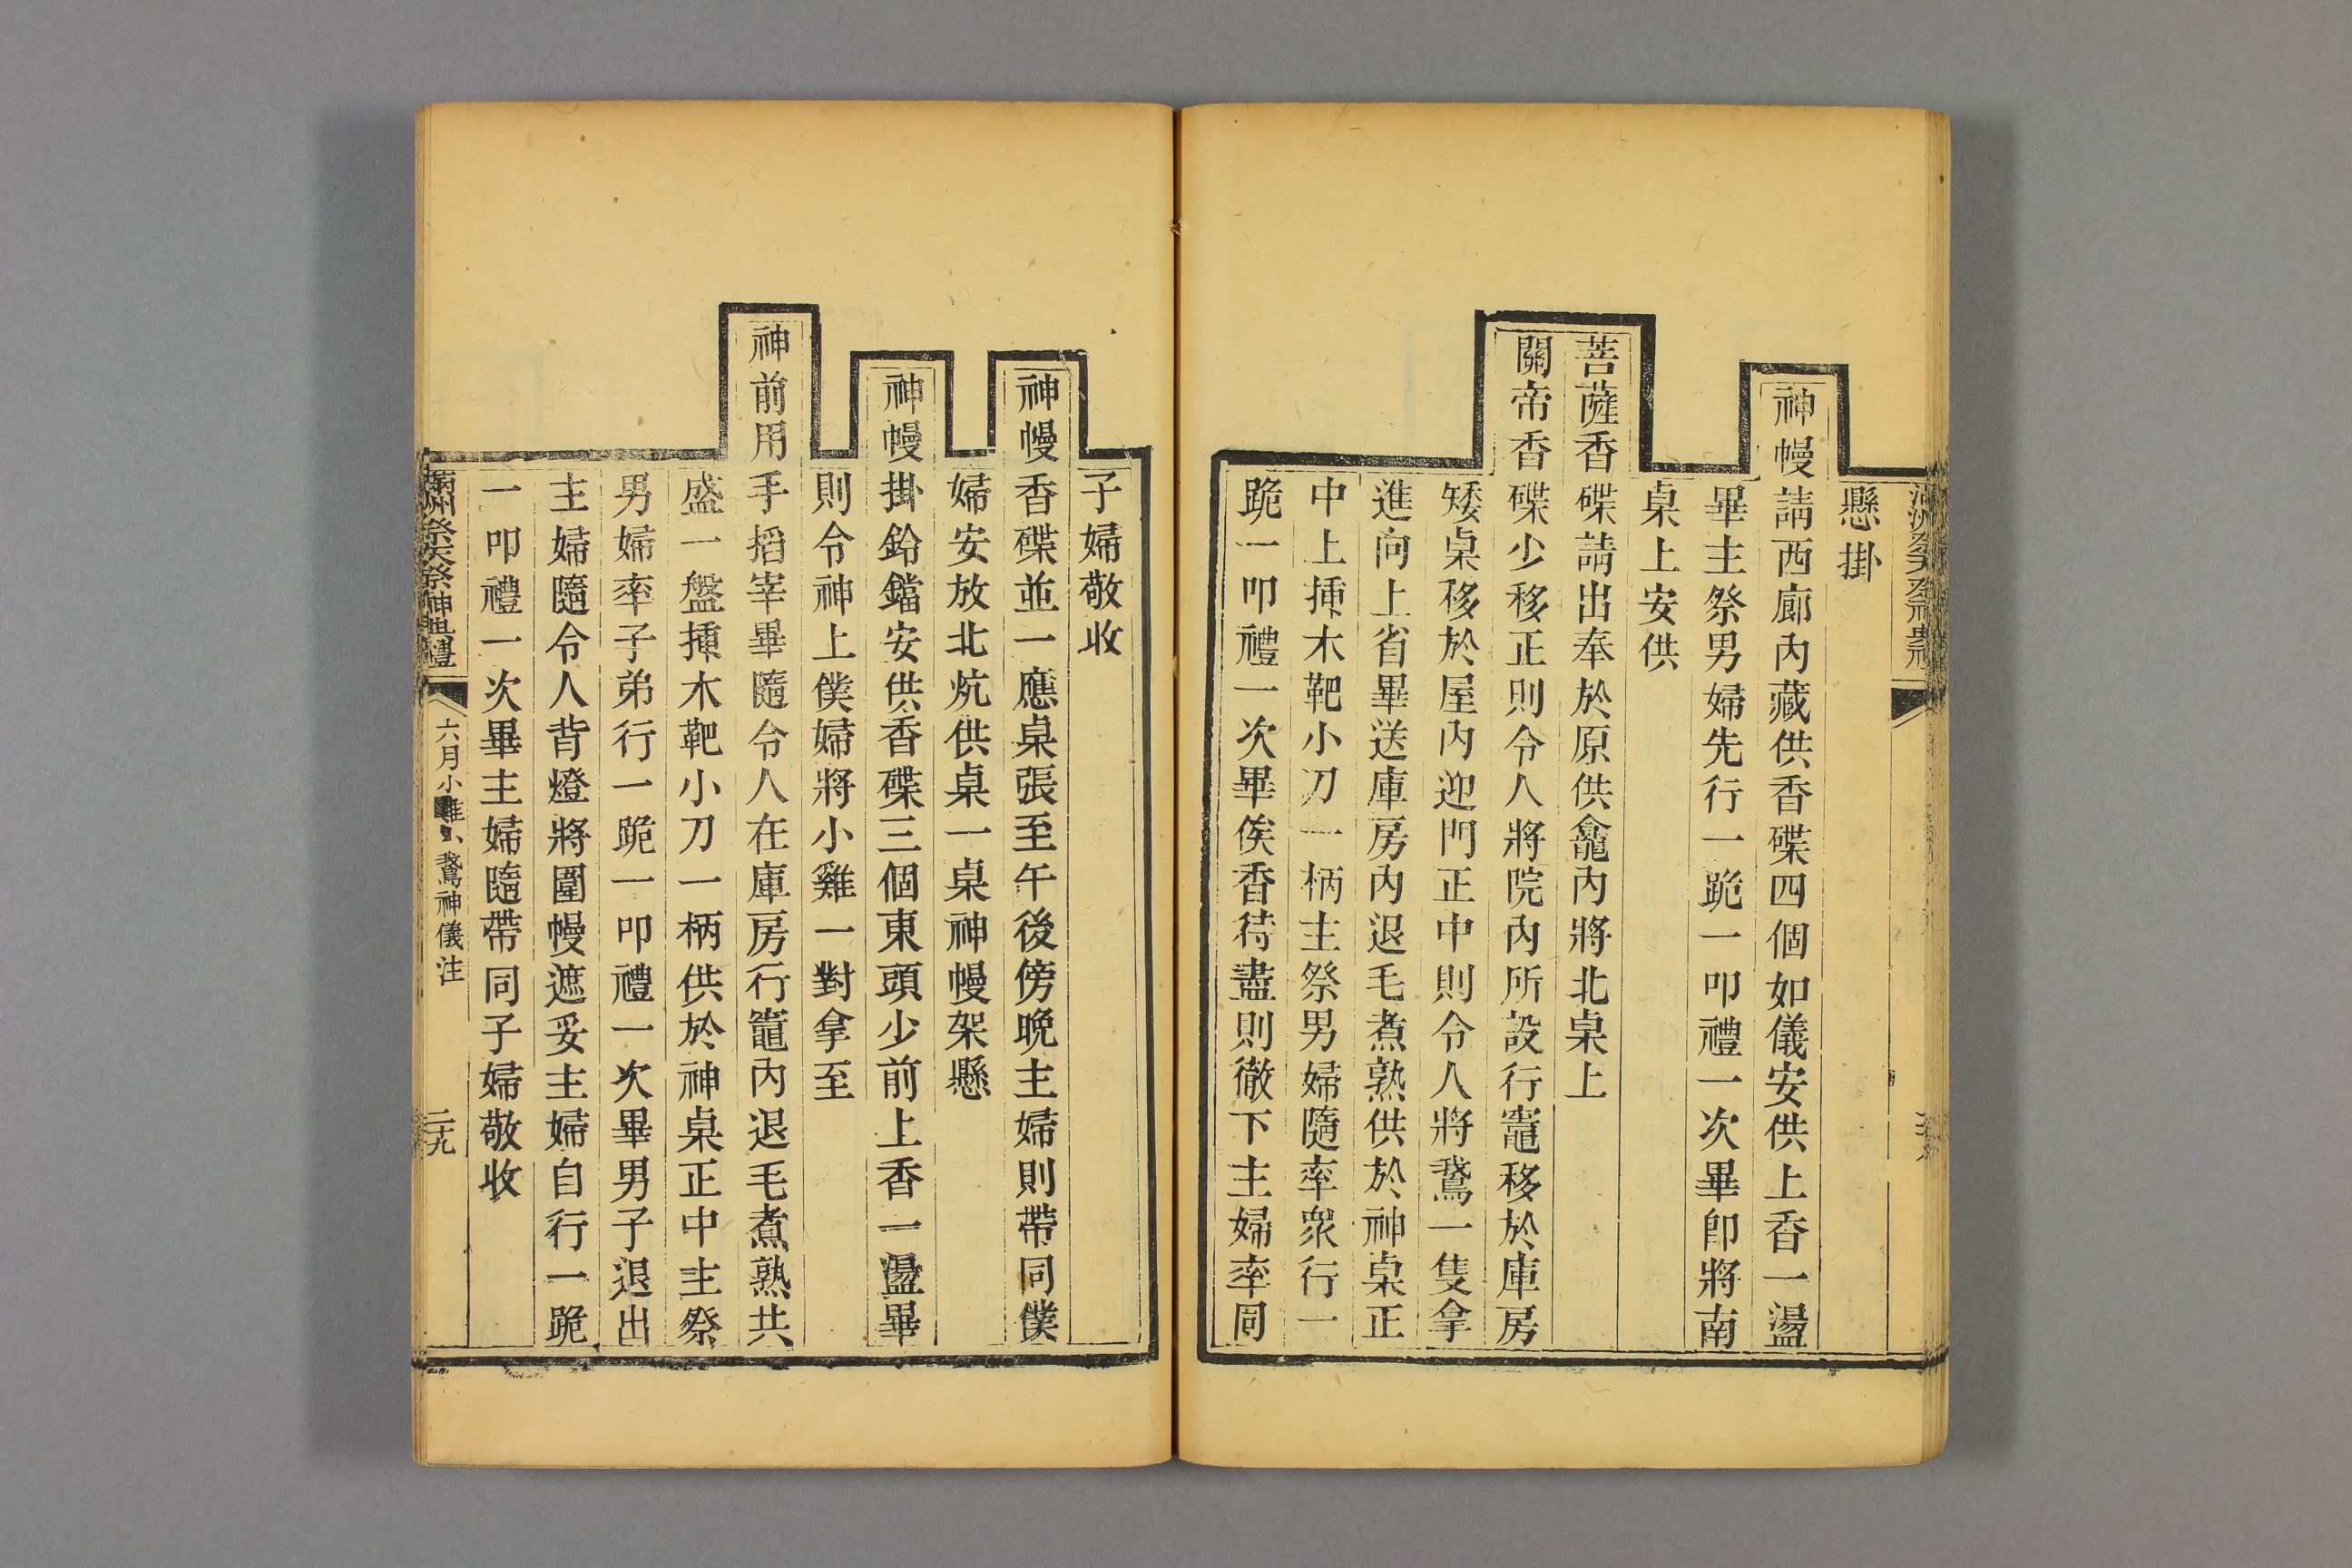 懸掛
神幔請西廊內藏供香碟四個如儀安供上香一盪
畢主祭男婦先行一跪一叩禮一次畢卽將南
桌上安供
菩薩香碟請出奉於原供龕內將北桌上
關帝香碟少移正則令人將院內所設行竈移於庫房
矮桌移於屋內迎門正中則令人將鵞一隻拿
進向上省畢送庫房內退毛煮熟供於神桌正
中上揷木靶小刀一柄主祭男婦隨率衆行一
跪一叩禮一次畢俟香待盡則徹下主婦率同
子婦敬收
神幔香碟並一應桌張至午後傍晚主婦則帶同僕
婦安放北炕供桌一桌神幔架懸
神幔掛鈴鐺安供香碟三個東頭少前上香一盪畢
則令神上僕婦將小雞一對拿至
神前用手搯宰畢隨令人在庫房行竈內退毛煮熟共
盛一盤揷木靶小刀一柄供於神桌正中主祭
男婦率子弟行一跪一叩禮一次畢男子退出
主婦隨令人背燈將圍幔遮妥主婦自行一跪
一叩禮一次畢主婦隨帶同子婦敬收
滿洲祭天祭神典禮
六月小雞小鵞神儀注
二十九